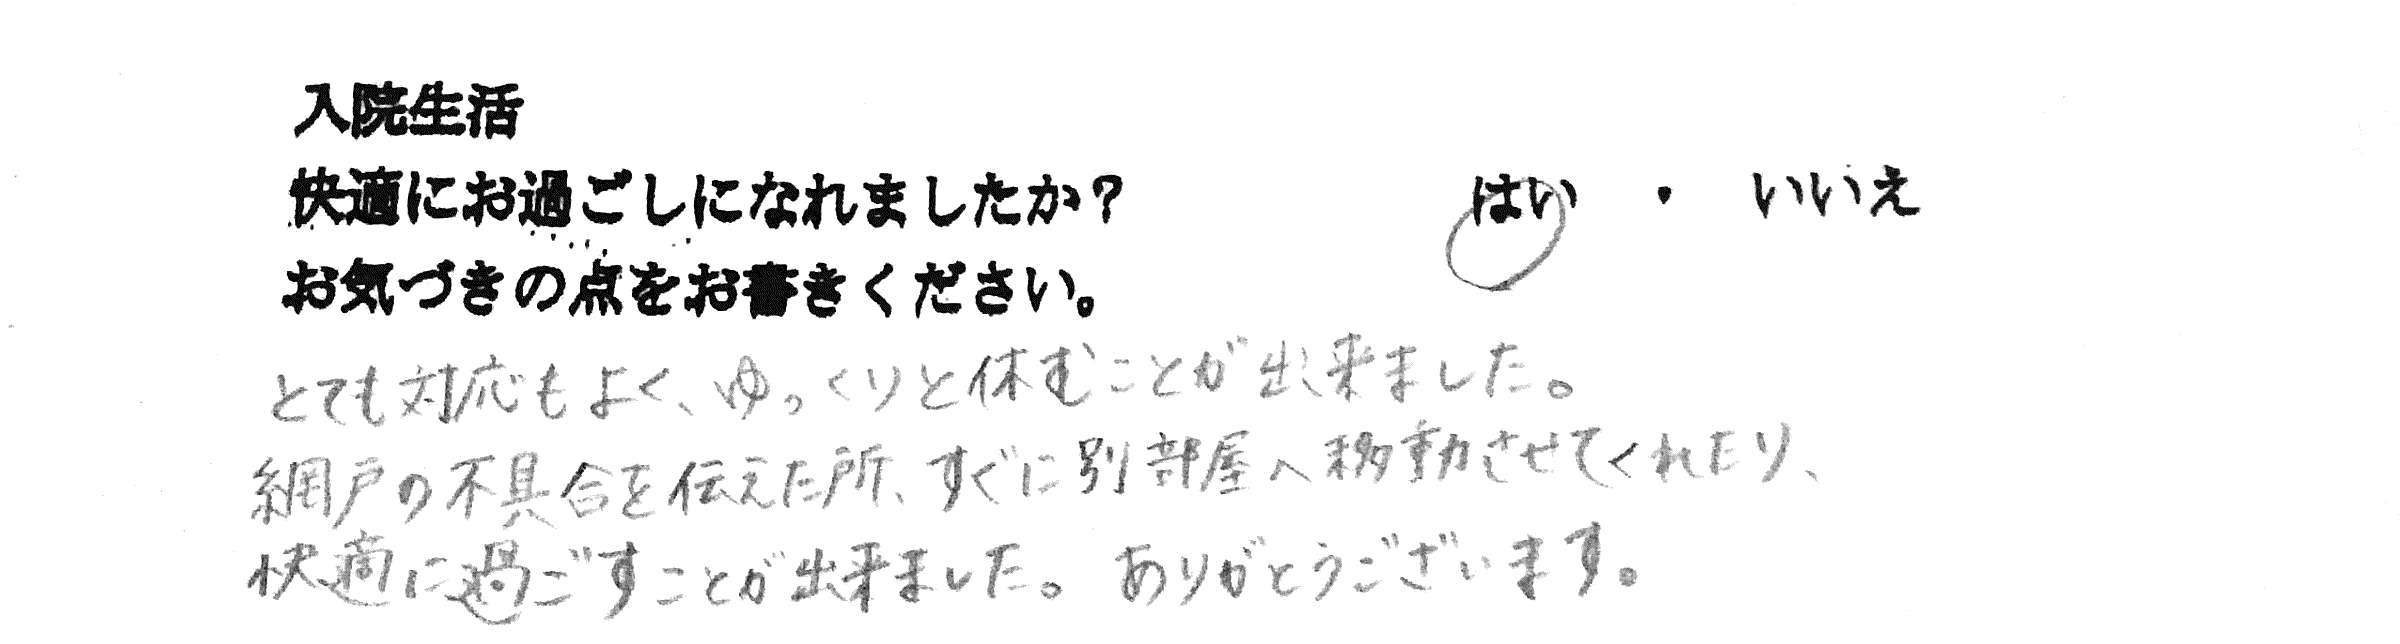 入院生活
快適にお過ごしになれましたか? はい ・ いいえ
お気づきの点をお書きください。
とても対応もよく、ゆっくりと休むことが出来ました。
網戸の不具合を伝えた所、すぐに別部屋へ移動させてくれたり、
快適に過ごすことが出来ました。ありがとうございます。